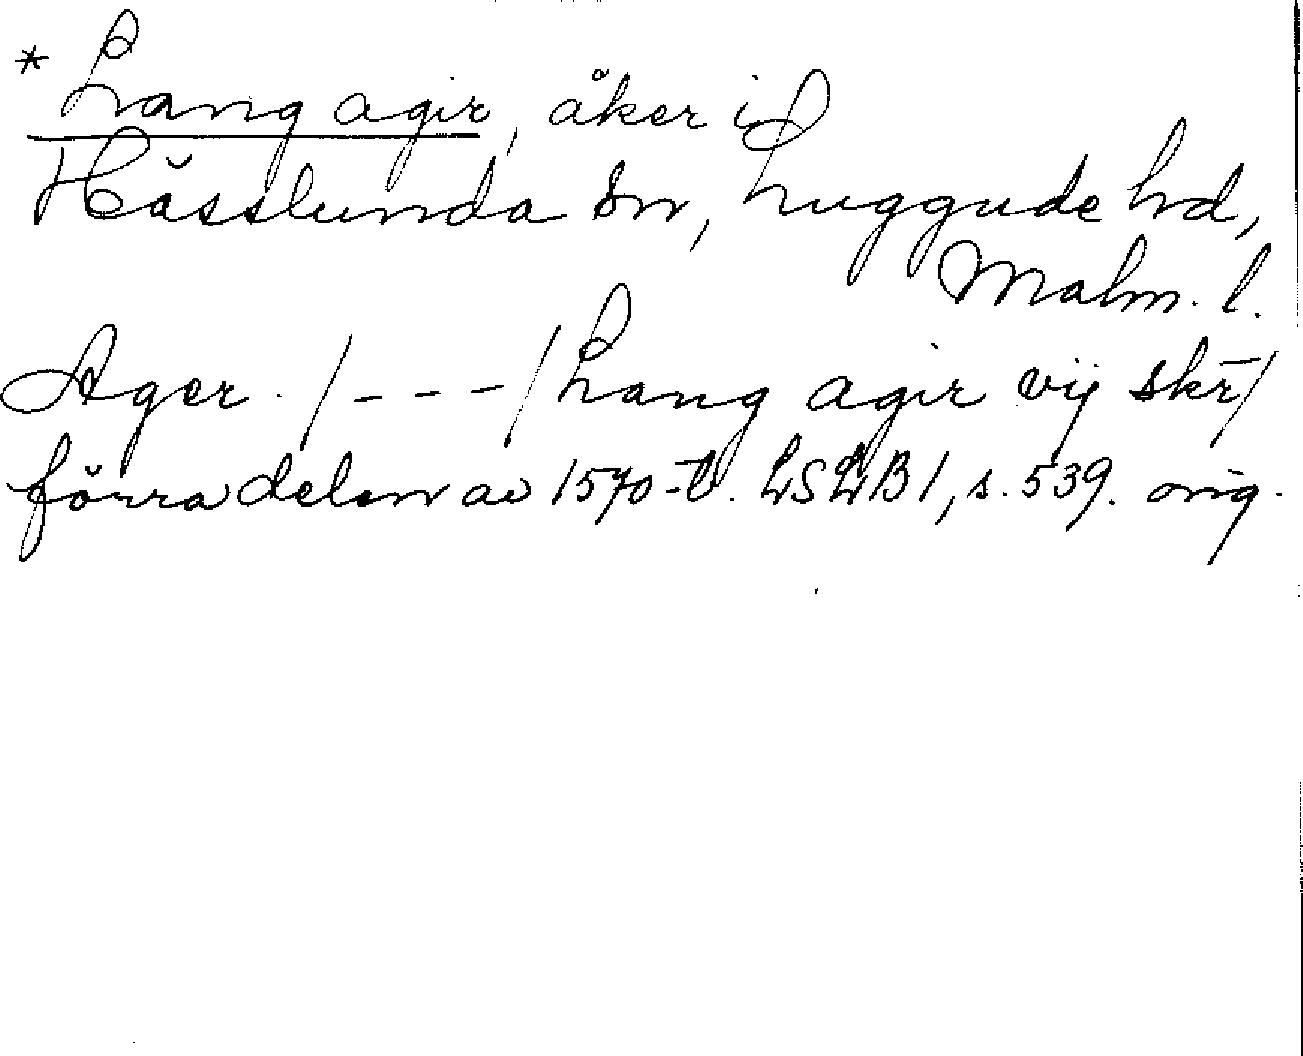 * Lang agir, åker i
Hässlunda sn, Luggude hd,
Malm. l.
Ager. /---/ Lang agir vij skr̄/
förra delen av 1570-t. LSLB1, s. 539. orig.